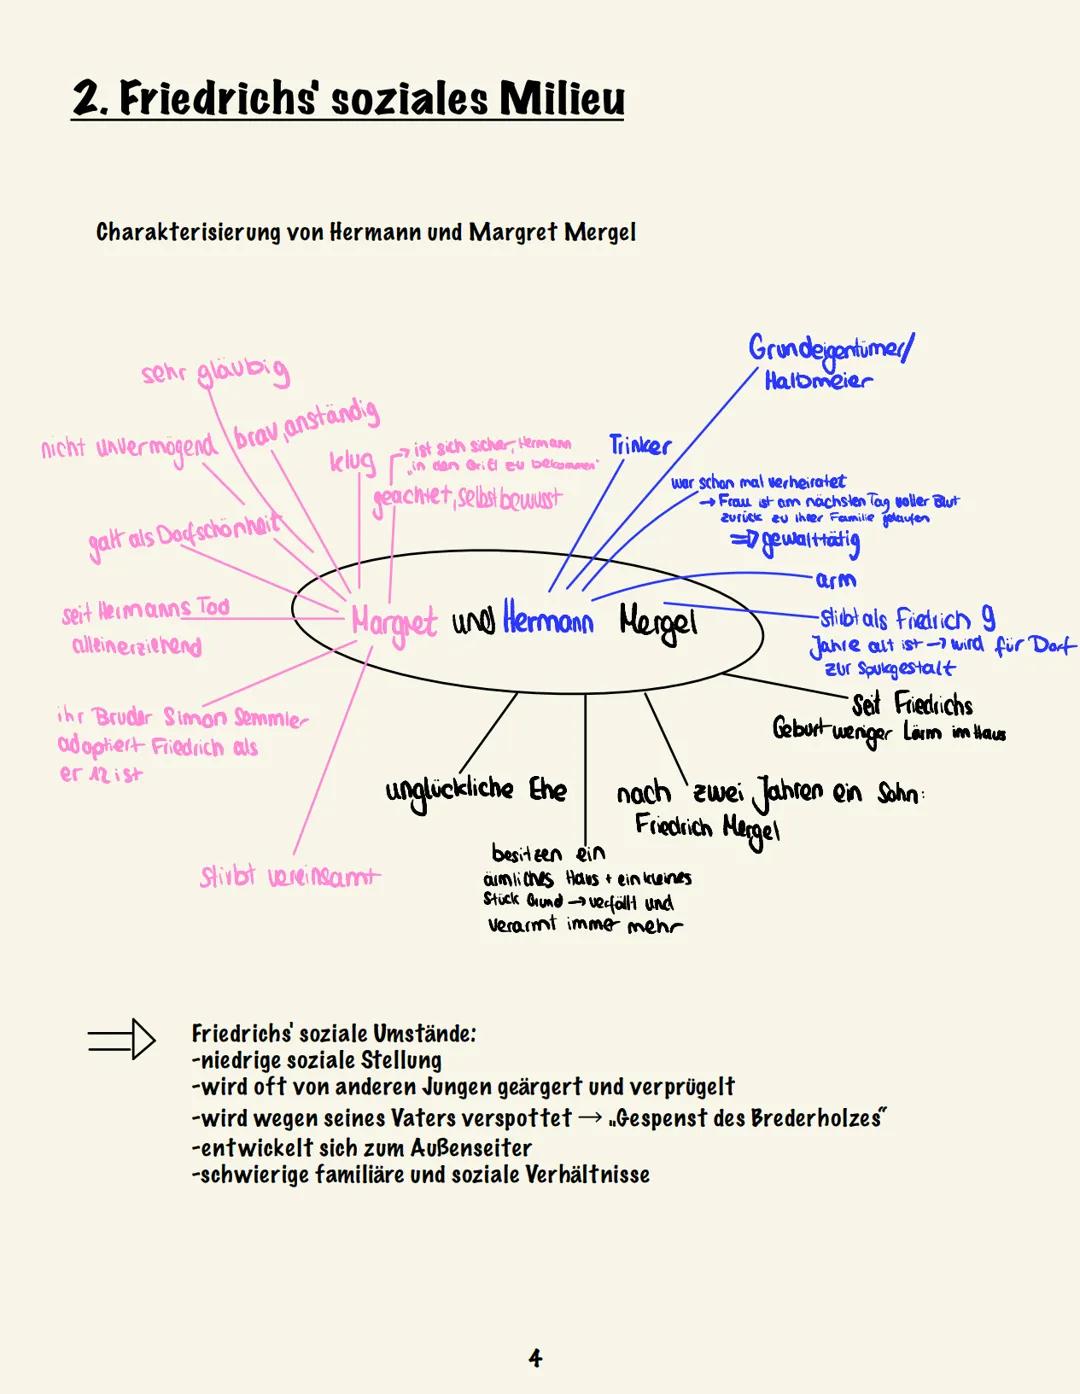 2. Friedrichs' soziales Milieu
Charakterisierung von Hermann und Margret Mergel
sehr gläubig
nicht unvermögend
brav, anständig
klug
→ ist sich sicher, Hermann
„in den Griff zu bekommen"
geachtet, selbstbewusst
galt als Dorfschönheit
seit Hermanns Tod
alleinerziehend
ihr Bruder Simon Semmler
adoptiert Friedrich als
er 12 ist
stirbt vereinsamt
Trinker
Grundeigentümer/
Halbmeier
war schon mal verheiratet
→ Frau ist am nächsten Tag voller Blut
zurück zu ihrer Familie gelaufen
⇒ gewalttätig
arm
stirbt als Friedrich 9
Jahre alt ist → wird für Dorf
zur Spukgestalt
Margret und Hermann Mergel
seit Friedrichs
Geburt weniger Lärm im Haus
unglückliche Ehe
nach zwei Jahren ein Sohn:
Friedrich Mergel
besitzen ein
ärmliches Haus + ein kleines
Stück Grund → verfällt und
verarmt immer mehr
⇒ Friedrichs' soziale Umstände:
-niedrige soziale Stellung
-wird oft von anderen Jungen geärgert und verprügelt
-wird wegen seines Vaters verspottet → „Gespenst des Brederholzes"
-entwickelt sich zum Außenseiter
-schwierige familiäre und soziale Verhältnisse
4